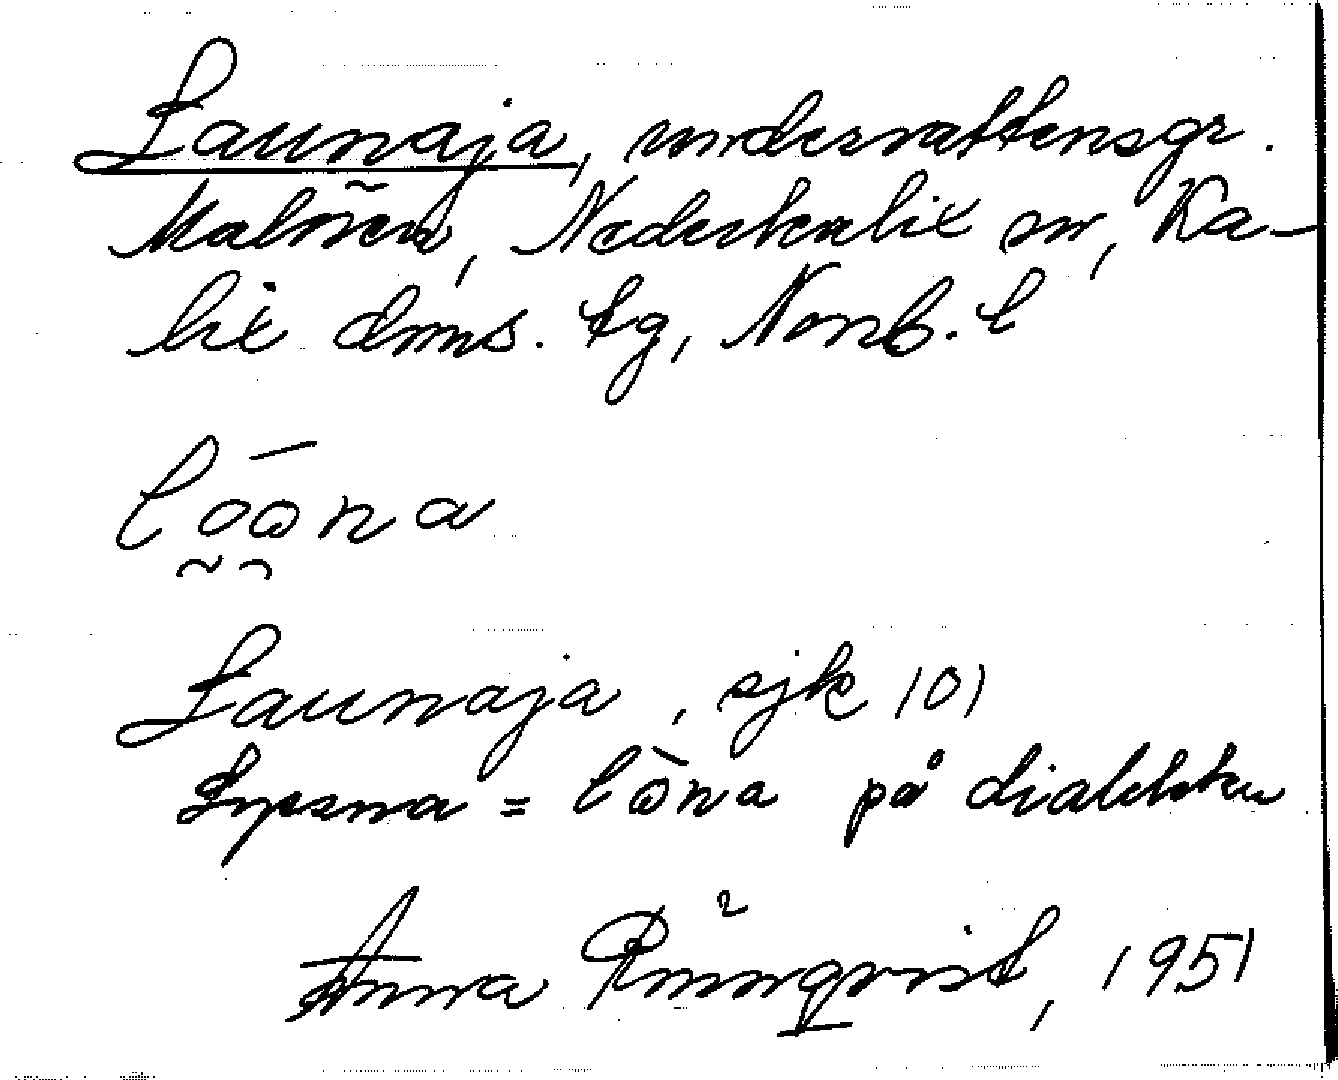 Launaja, undervattensgr.
Malören, Nederkalix sn, Ka-
lix dms. tg, Norrb. l
lōωna
Launaja, sjk 101
= lòna på dialekten
Anna Rönnqvist, 1951